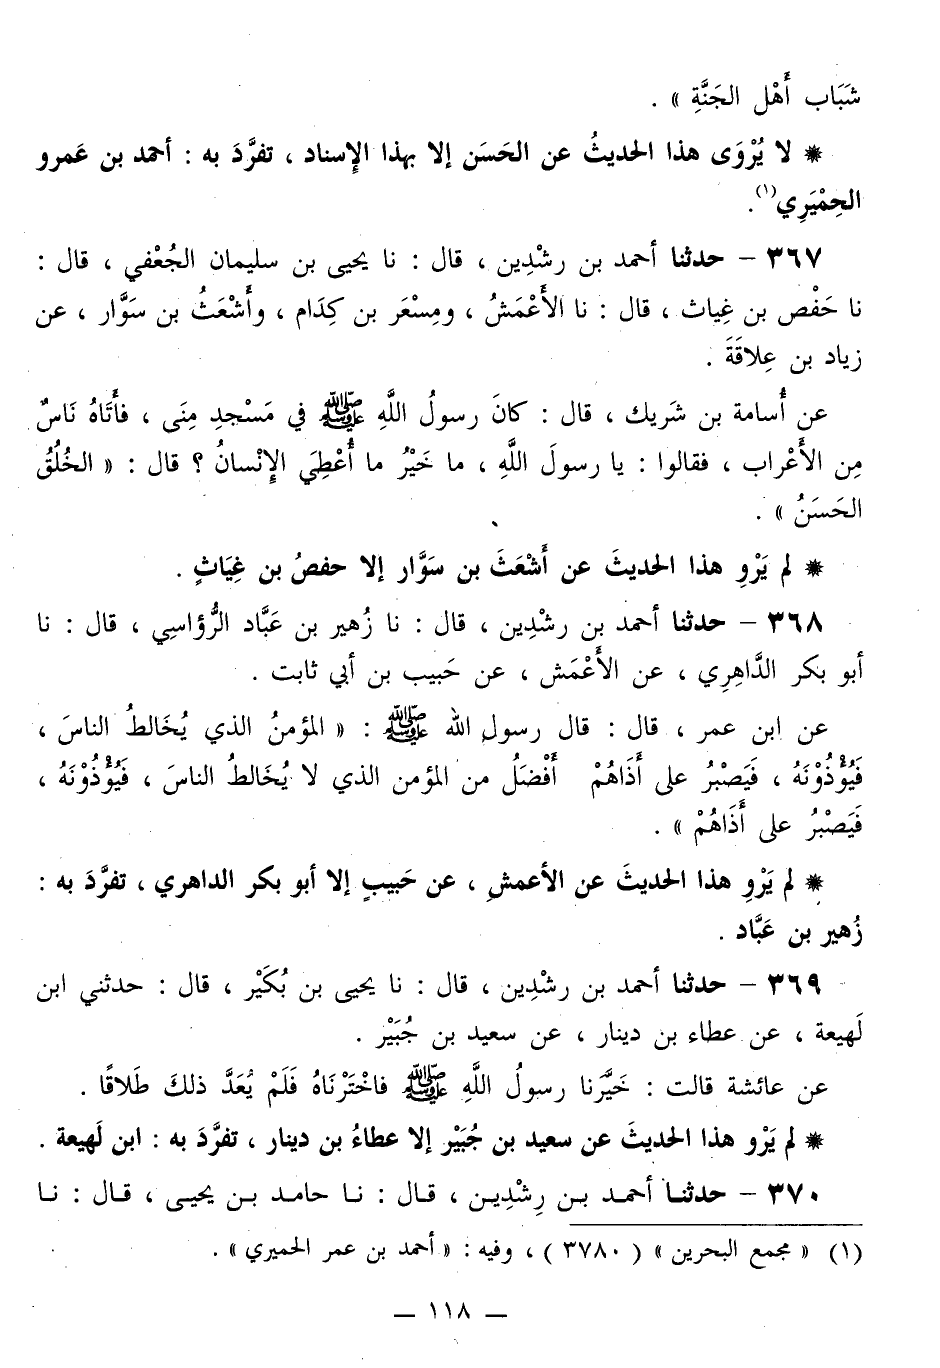 شَبَاب أَهْل الجَنَّةِ » .
* لا يُرْوَى هذا الحديثُ عن الحَسَن إلا بهذا الإِسناد ، تفرَّدَ به : أحمد بن عَمرو
الحِمْيَرِي(١).
٣٦٧ – حدثنا أحمد بن رشْدِين ، قال : نا يحيى بن سليمان الجُعْفي ، قال :
نا حَفْص بن غِياث ، قال : نا الأَعْمَشُ ، ومِسْعَر بن كِدَام ، وأَشْعَثُ بن سَوَّار ، عن
زياد بن عِلاقَةَ .
عن أُسامة بن شَريك ، قال : كانَ رسولُ اللَّهِ ﷺ في مَسْجدِ مِنَى ، فأَتَاهُ نَاسٌ
مِن الأَعْراب ، فقالوا : يا رسولَ اللَّهِ ، ما خَيْرُ ما أُعْطِيَ الإنْسانُ ؟ قال : « الخُلُقُ
الحَسَنُ » .
* لم يَرْوِ هذا الحديثَ عن أَشْعَثَ بن سَوَّار إلا حفصُ بن غِيَاثٍ .
٣٦٨ – حدثنا أحمد بن رشْدِين ، قال : نا زُهير بن عَبَّاد الرُّؤاسِي ، قال : نا
أبو بكر الدَّاهِرِي ، عن الأَعْمَش ، عن حَبيب بن أبي ثابت .
عن ابن عمر ، قال : قال رسول الله ﷺ : « المؤمنُ الذي يُخَالطُ الناسَ ،
فَيُؤْذُوْنَهُ ، فَيَصْبُرُ على أَذَاهُمْ أَفْضَلُ من المؤمن الذي لا يُخَالطُ الناسَ ، فَيُؤْذُوْنَهُ ،
فَيَصْبُرُ على أَذَاهُمْ » .
* لم يَرْوِ هذا الحديثَ عن الأعمشِ ، عن حَبيبٍ إلا أبو بكر الداهري ، تفرَّدَ به :
زُهير بن عَبَّاد .
٣٦٩ – حدثنا أحمد بن رشْدِين ، قال : نا يحيى بن بُكَيْر ، قال : حدثني ابن
لَهيعة ، عن عطاء بن دينار ، عن سعيد بن جُبَيْر .
عن عائشة قالت : خَيَّرَنا رسولُ اللَّهِ ﷺ فاخْتَرْنَاهُ فَلَمْ يُعَدَّ ذلكَ طَلاقًا .
* لم يَرْو هذا الحديثَ عن سعيد بن جُبَيْر إلا عطاءُ بن دينار ، تفرَّدَ به : ابن لَهيعة .
٣٧٠ – حدثنا أحمد بن رِشْدِين ، قال : نا حامد بن يحيى ، قال : نا
(١) « مجمع البحرين » ( ٣٧٨٠ ) ، وفيه : « أحمد بن عمر الحميري » .
— ١١٨ —